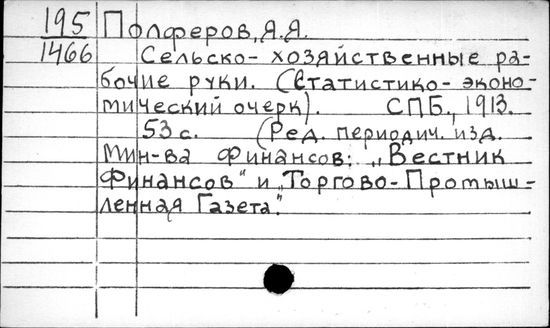 195 Полферов, Я.Я.
1466 Сельско-хозяйственные ра-
бочие руки. (Статистико-эконо-
мический очерк). СПБ., 1913.
53 с. (Ред. периодич. изд.
Мин-ва Финансов: „Вестник
Финансов" и „Торгово-Промыш-
ленная Газета".